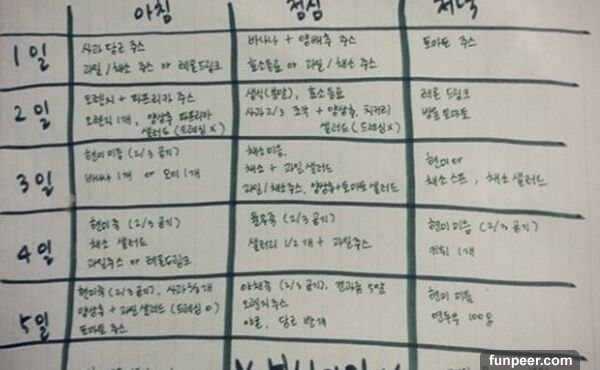 아침 점심 저녁
1일
사과 당근 주스
과일/채소 주스 or 레몬드링크
바나나 + 양배추 주스
효소음료 or 과일/채소 주스
토마토 주스
2일
오렌지 + 파프리카 주스
오렌지 1개, 양상추 파프리카
샐러드 (드레싱 X)
생식(분말), 효소음료
사과 2/3 조각 + 양상추, 치커리
샐러드 (드레싱 X)
레몬 드링크
방울 토마토
3일
현미 미음 (2/3 공기)
바나나 1개 or 오이 1개
채소미음,
채소 + 과일 샐러드
과일/채소주스, 양상추+토마토 샐러드
현미 or
채소 스프, 채소 샐러드
4일
현미죽 (2/3 공기)
채소 샐러드
과일주스 or 레몬드링크
(2/3 공기)
샐러리 1/2개 + 과일주스
현미 미음 (2/3 공기)
키위 1개
5일
현미죽 (2/3 공기), 사과
양상추 + 과일 샐러드 (드레싱 O)
토마토 주스
야채죽 (2/3 공기), 견과류 5알
오렌지주스
오이, 당근 반개
현미 미음
연두부 100g
funpeer.com